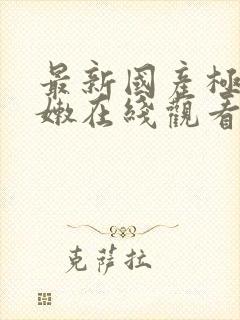 最新國產極
嫩在綫觀看
克薩拉